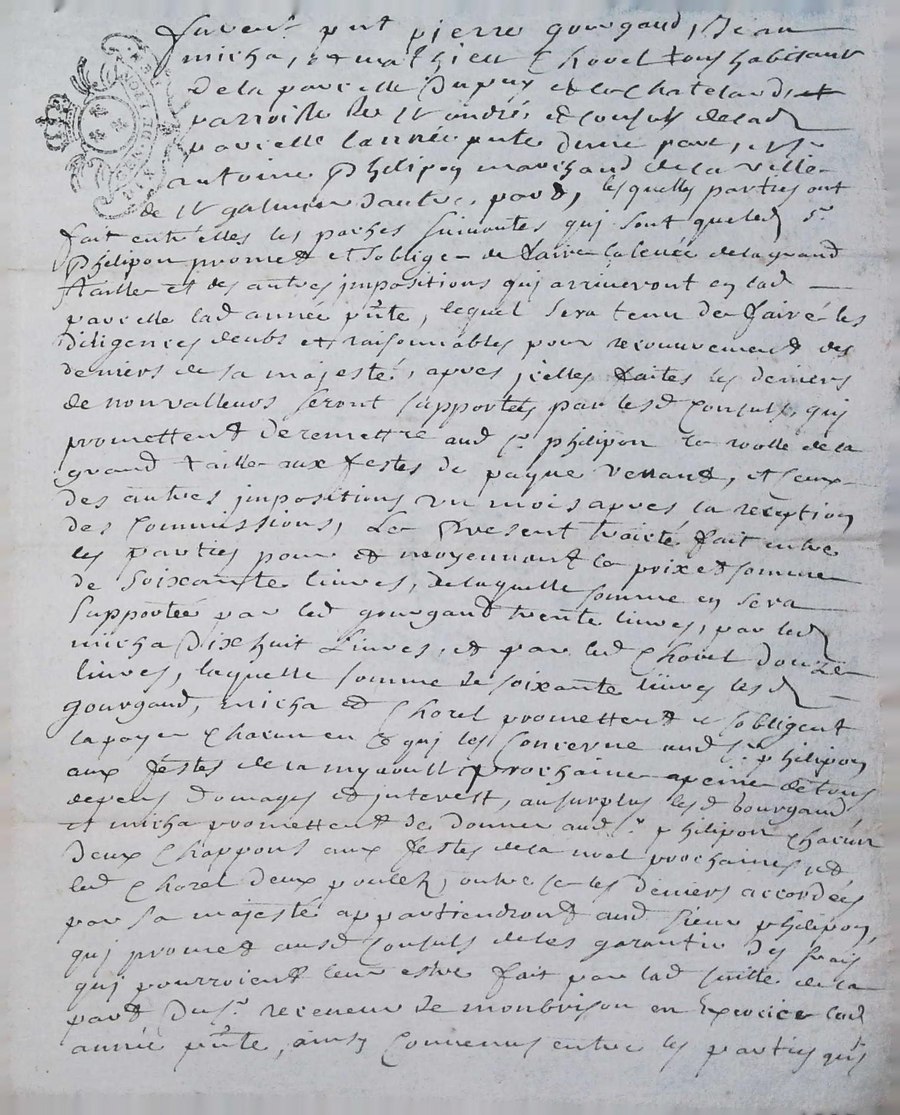 furent pnt pierre gourgaud, Jean
micha, et mathieu Chorel tous habitant
de la parcelle Dupuy et le Chateland, et
parroisse de St andré, et consuls de lad
parcelle lannée pnte dune part, et Sr
antoine Philipon marchand de la ville
de St galmier dautre, part, lesquelles parties ont
fait entrelles les paches suivantes qui sont que led Sr
Philipon promet et soblige de faire la levée de la grand
taille et des autres impositions qui arriveront en lad
parcelle lad année pnte, lequel sera tenu de faire les
diligences deubs et raisonnables pour recouvrement des
deniers de sa majesté, apres jcelles faites les deniers
de nonvalleurs seront supportées par lesd Consuls, qui
promettent de remettre aud Sr philipon le rolle de la
grand taille aux festes de paque venant, et ceux
des autres jmpositions un mois apres la reception
des Commissions, Le Present traité fait entre
les parties pour et moyennant le prix et somme
de soixante livres, de laquelle somme en sera
supportée par led gourgaud trente livres, par led
micha Dix huit Livres, et par led Chorel douze
livres, laquelle somme de soixante livres lesd
gourgaud, micha et Chorel promettent et sobligent
la payer Chacun en Ce qui les Concerne aud Sr philipon
aux festes de la myaoust prochaine apeine de tous
depens domages et interest, au surplus lesd bourgaud
et micha promettent de donner aud Sr philipon Chacun
deux Chappons aux festes de la noel prochaines, et
led Chorel deux poulets, outre ce les deniers accordées
par sa majesté appartiendront aud sieur philipon,
qui promet ausd Consuls de les garantir des frais
qui pourroient leur estre fait par lad taille de la
part du Sr receveur de monbrison en Exercice lad
année pnte, ainsy Convenus entre les parties qui